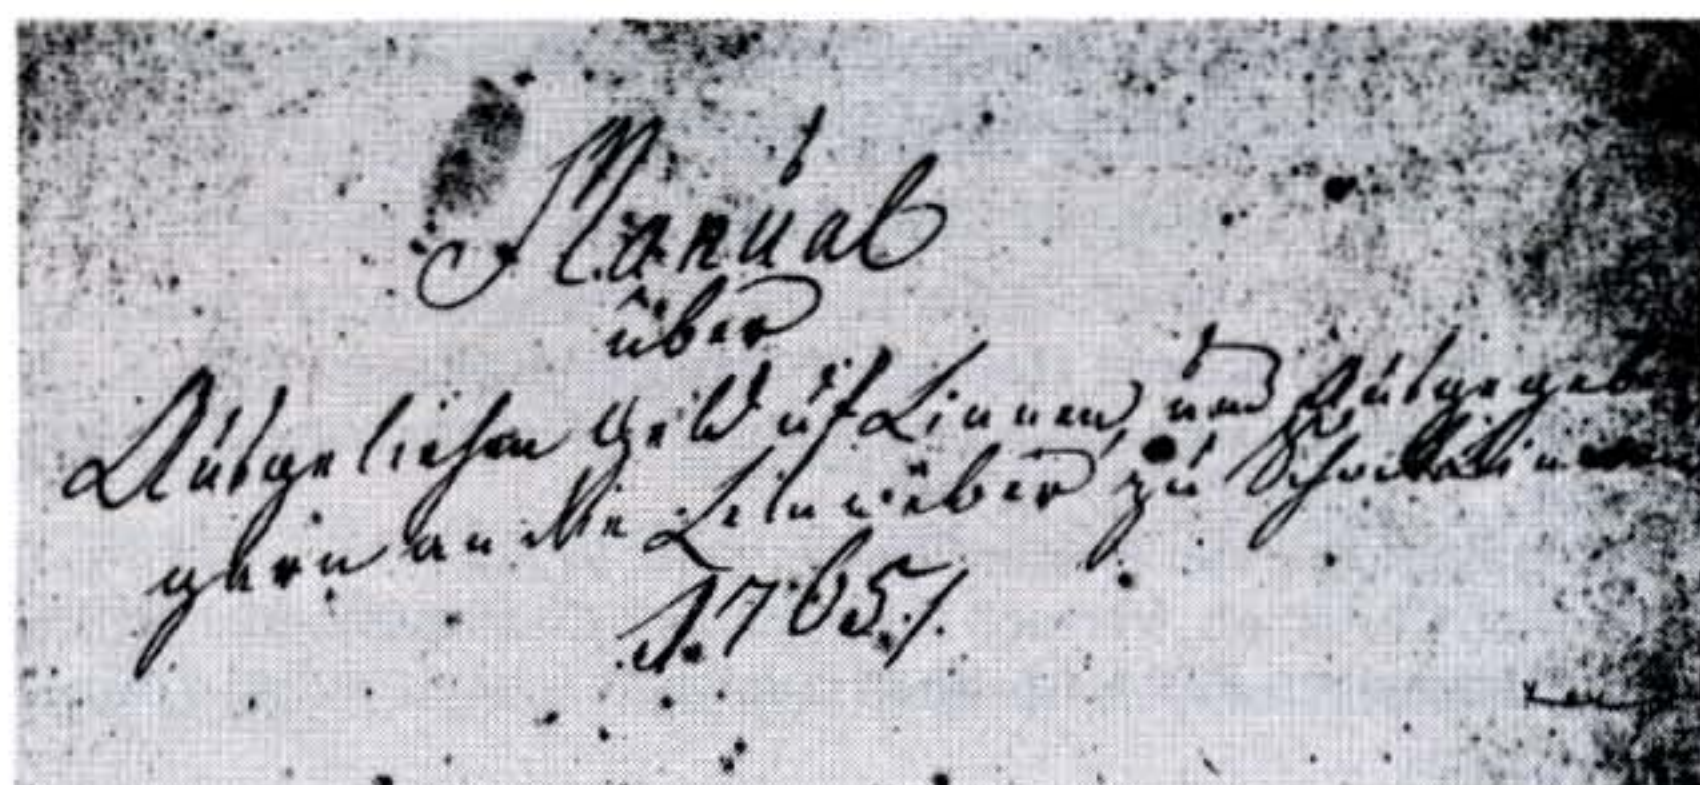 Manual
über
Ausgeliehen Geld uf Linnen, und Ausgegeben
garn an die Leinwëber zu
1765./.